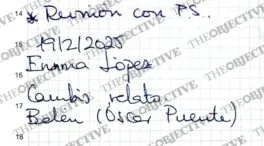 14 * Reunión con PS.
15 19/2/2025
Emma López
16
Cambio relato
17 Belén (Óscar Puente)
18
THE OBJECTIVE